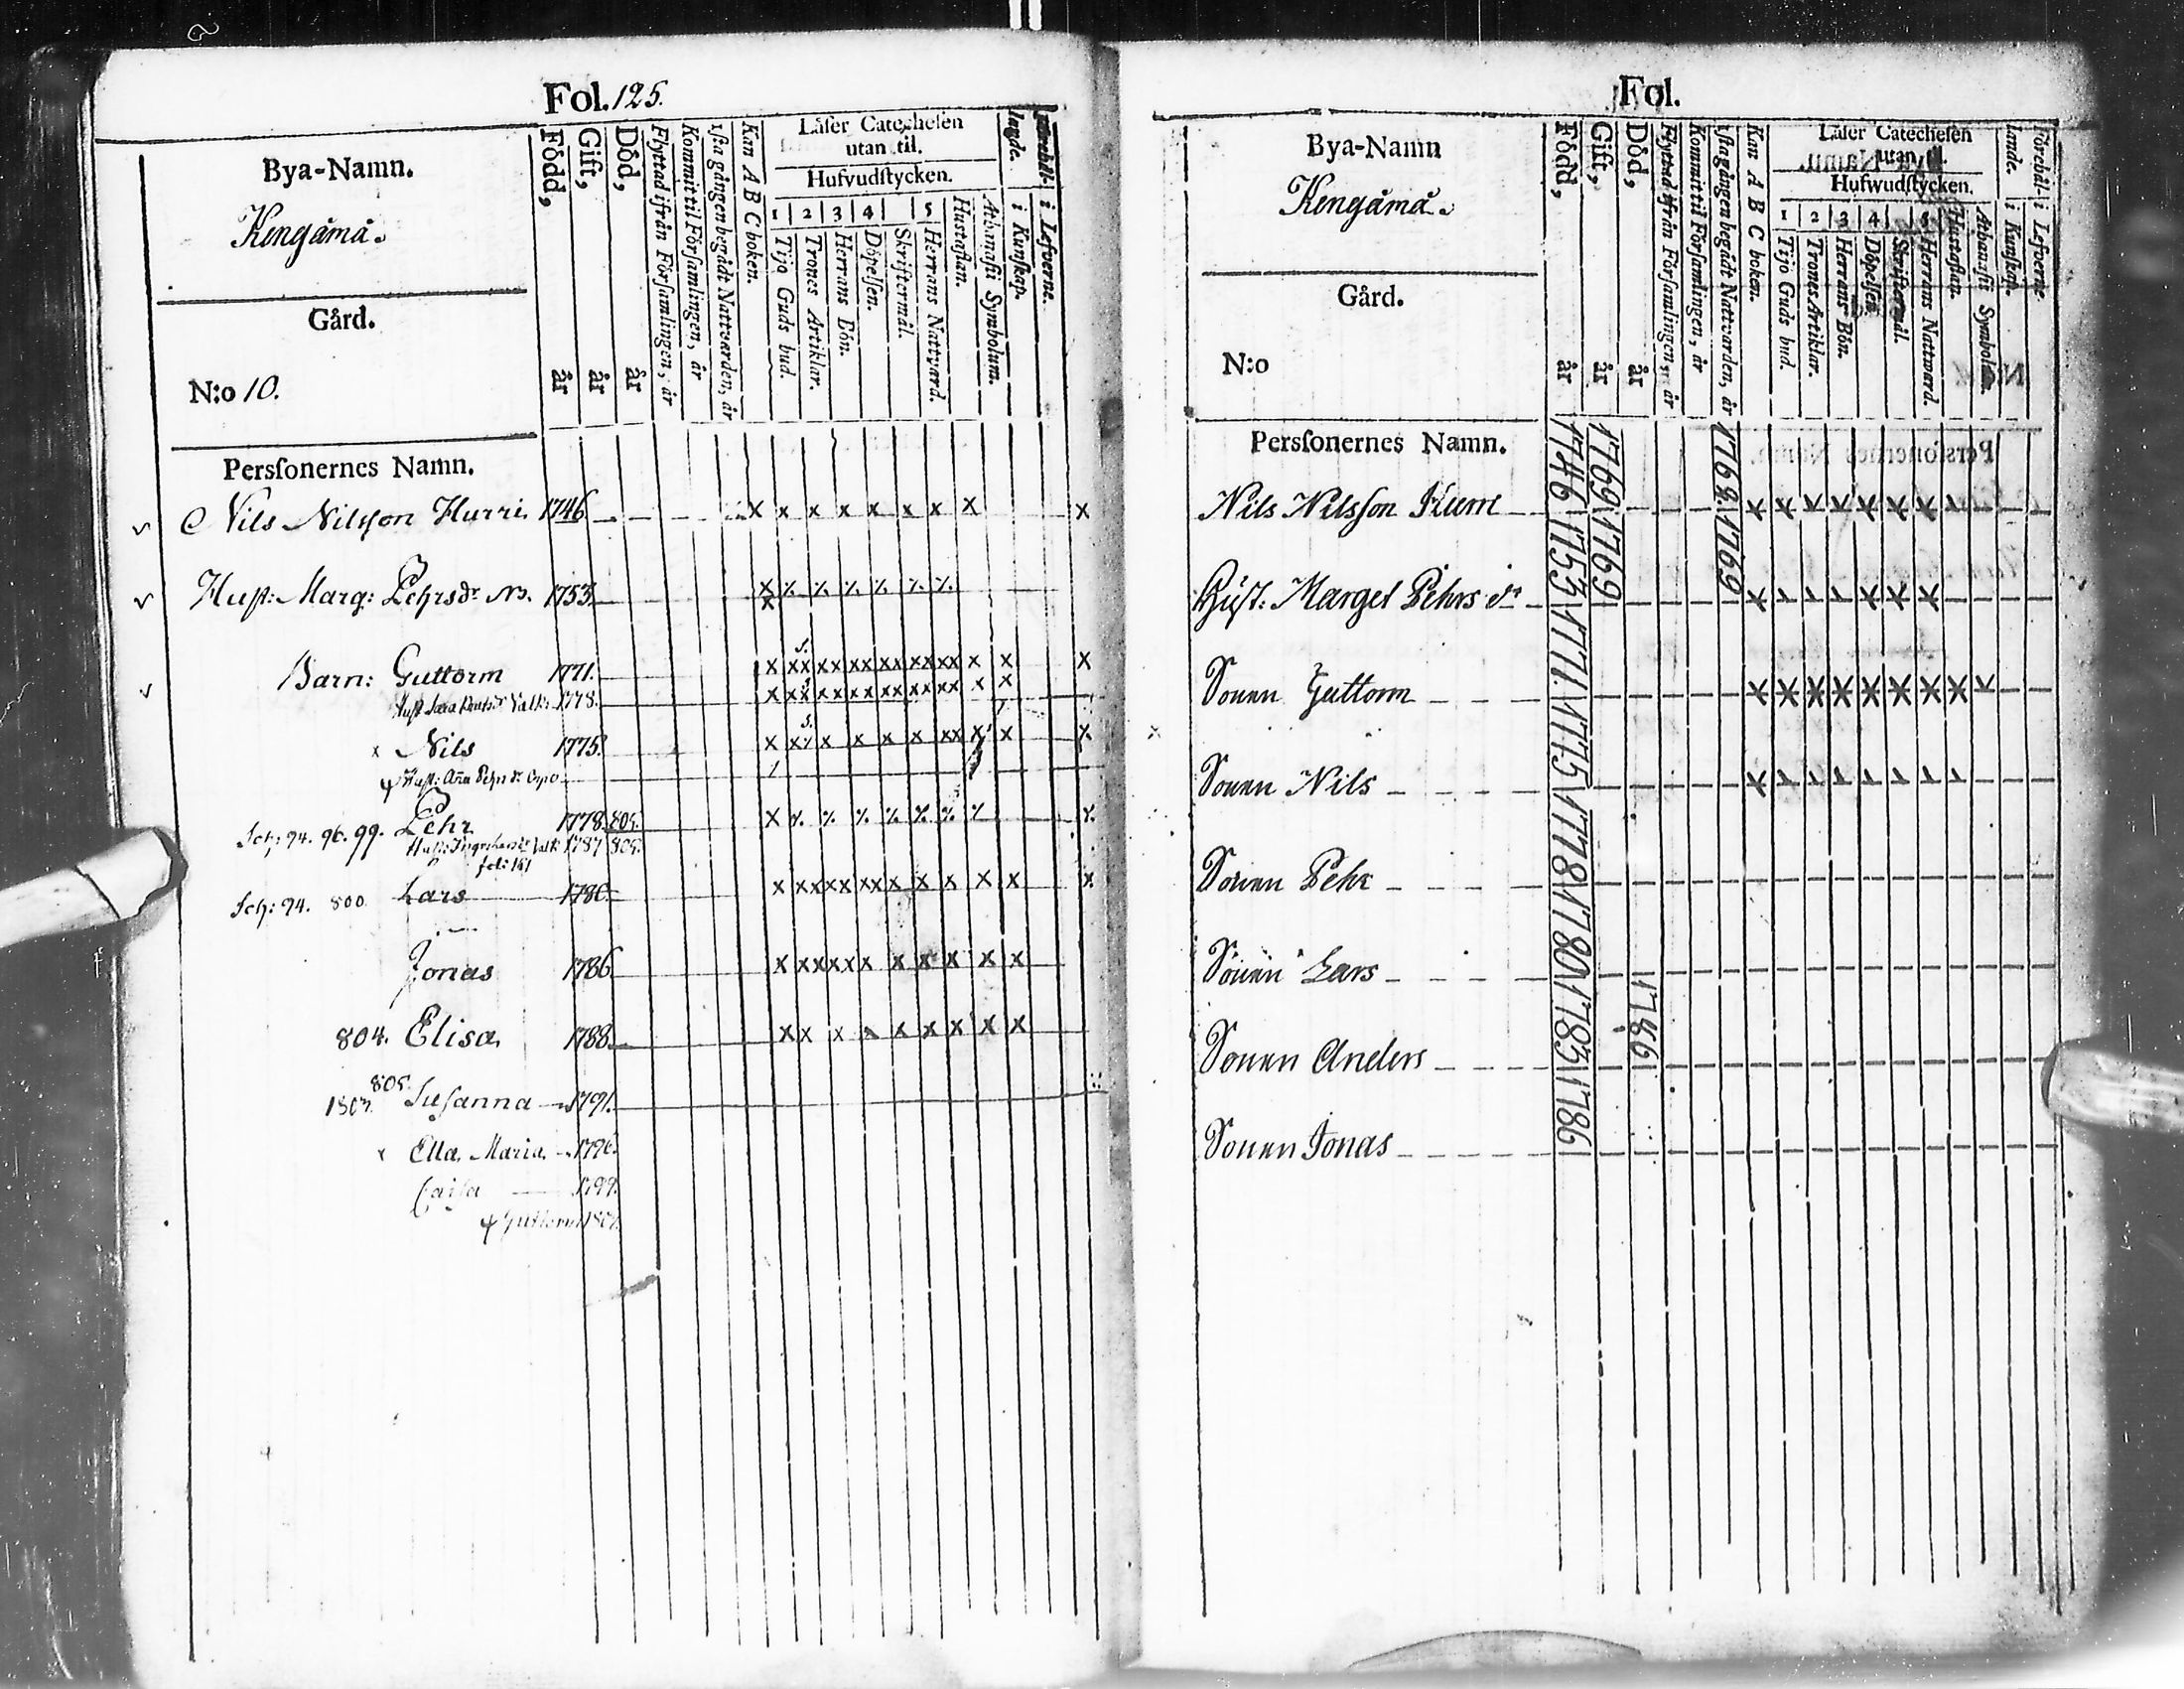 Fol. 125.
Bya-Namn.
Kengämä.
Gård.
N:o 10.
Född, år
Gift, år
Död, år
Flyttad ifrån Förſamlingen, år
Kommit til Förſamlingen, år
1ſta gången begådt Nattvarden, år
Kan A B C boken.
Läſer Catecheſen
utan til.
Hufvudſtycken.
1 2 3 4 5
Tijo Guds bud.
Trones Artiklar.
Herrans Bön.
Döpelſen.
Skriftermål.
Herrans Nattvard.
Huſtaflan.
Athanaſii Symbolum.
i Kunſkap.
i Lefverne.
Perſonernes Namn.
Nils Nilsſon Hurri. 1746 x x x x x x x x x
Huſt: Marg: Pehrsdr 1753.
Barn: Guttorm 1771.
Huſt Sara 1778.
x Nils 1775.
Huſt: Pehrsdr
Pehr 1778. 805.
Sch: 94. 96. 99.
1787 805.
Sch: 94. 800. Lars 1780
Jonas 1786
804. Elisa 1788.
805.
Suſanna 1791.
Ella Maria 1796.
Caiſa 1799.
Guttorm
Fol.
Bya-Namn
Kengämä.
Gård.
N:o
Född, år
Gift, år
Död, år.
Flyttad ifrån Förſamlingen, år
Kommit til Förſamlingen, år
1ſta gången begådt Nattvarden, år
Kan A B C boken.
Läſer Catecheſen
utan til.
Hufwudſtycken.
1 2 3 4 5
Tijo Guds bud.
Trones Artiklar.
Herrans Bön.
Döpelſen.
Skriftermål.
Herrans Nattvard.
Huſtaflan.
Athanaſii Symbolum.
i Kunſkap.
i Lefverne.
Perſonernes Namn.
Nils Nilsſon 1746 1769
Huſt: Marget Pehrs dr 1753 1769 1769
Sonen Guttorm 1771
Sonen Nils 1775
Sonen Pehr 1778
Sonen Lars 1780
Sonen Anders 1783 1786
Sonen Jonas 1786